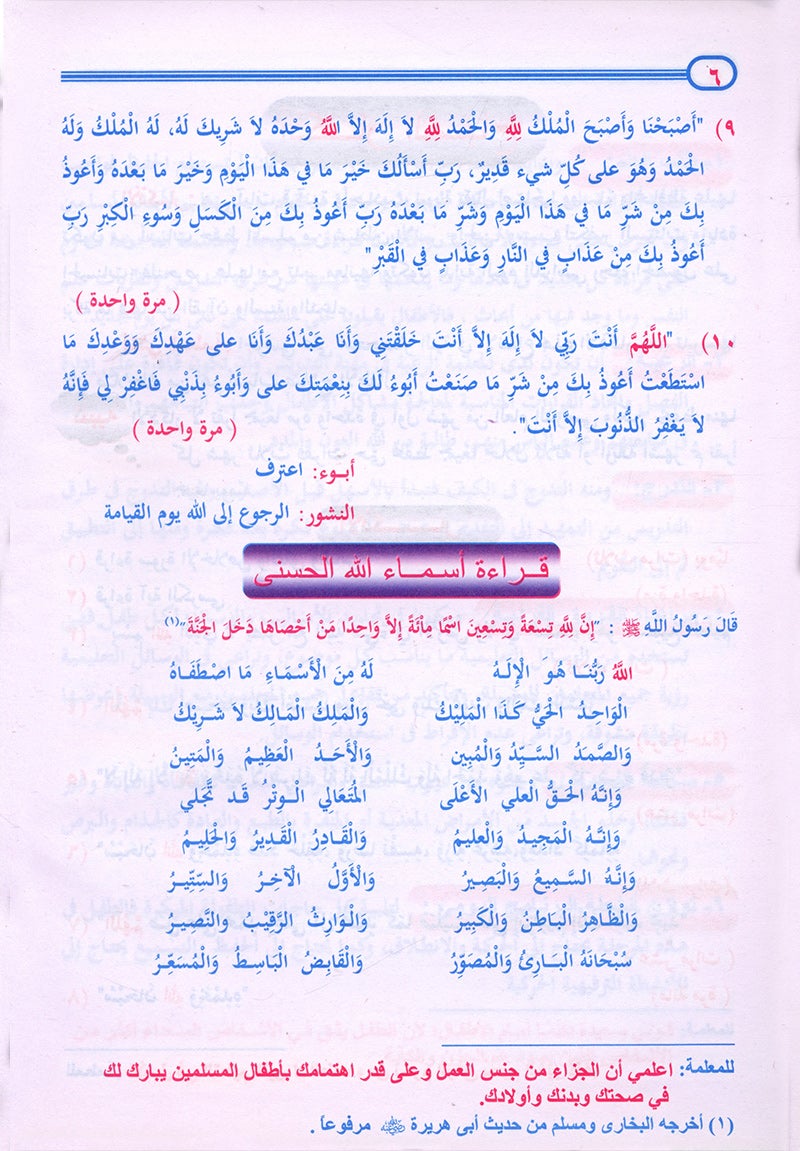 ٦
٩) "أَصْبَحْنَا وَأَصْبَحَ الْمُلْكُ لِلَّهِ وَالْحَمْدُ لِلَّهِ لاَ إِلَهَ إِلاَّ اللَّهُ وَحْدَهُ لاَ شَرِيكَ لَهُ، لَهُ الْمُلْكُ وَلَهُ
الْحَمْدُ وَهُوَ على كُلِّ شيء قَدِيرٌ، رَبِّ أَسْأَلُكَ خَيْرَ مَا فِي هَذَا الْيَوْمِ وَخَيْرَ مَا بَعْدَهُ وَأَعُوذُ
بِكَ مِنْ شَرِّ مَا فِي هَذَا الْيَوْمِ وَشَرِّ مَا بَعْدَهُ رَبِّ أَعُوذُ بِكَ مِنَ الْكَسَلِ وَسُوءِ الْكِبَرِ رَبِّ
أَعُوذُ بِكَ مِنْ عَذَابٍ فِي النَّارِ وَعَذَابٍ فِي الْقَبْرِ"
( مرة واحدة )
١٠) "اللَّهُمَّ أَنْتَ رَبِّي لاَ إِلَهَ إِلاَّ أَنْتَ خَلَقْتَنِي وَأَنَا عَبْدُكَ وَأَنَا على عَهْدِكَ وَوَعْدِكَ مَا
اسْتَطَعْتُ أَعُوذُ بِكَ مِنْ شَرِّ مَا صَنَعْتُ أَبُوءُ لَكَ بِنِعْمَتِكَ على وَأَبُوءُ بِذَنْبِي فَاغْفِرْ لِي فَإِنَّهُ
لاَ يَغْفِرُ الذُّنُوبَ إِلاَّ أَنْتَ". ( مرة واحدة )
أبوء: اعترف
النشور: الرجوع إلى الله يوم القيامة
قراءة أسماء الله الحسنى
قَالَ رَسُولُ اللَّهِ ﷺ : "إِنَّ لِلَّهِ تِسْعَةً وَتِسْعِينَ اسْمًا مِائَةً إِلاَّ وَاحِدًا مَنْ أَحْصَاهَا دَخَلَ الْجَنَّةَ"(١)
اللَّهُ رَبُّنَا هُوَ الْإِلَهُ لَهُ مِنَ الْأَسْمَاءِ مَا اصْطَفَاهُ
الْوَاحِدُ الْحَيُّ كَذَا الْمَلِيكُ وَالْمَلِكُ الْمَالِكُ لاَ شَرِيْكُ
وَالصَّمَدُ السَّيِّدُ وَالْمُبِين وَالْأَحَدُ الْعَظِيمُ وَالْمَتِينُ
وَإِنَّهُ الْحَقُّ العلي الأَعْلَى الْمُتَعَالِي الْوِتْرُ قَد تَّجَلِّي
وَإِنَّهُ الْمَجِيدُ وَالْعَلِيمُ وَالْقَادِرُ الْقَدِيرُ وَالْحَلِيمُ
وَإِنَّهُ السَّمِيعُ وَالْبَصِيرُ وَالْأَوَّلُ الْآخِرُ وَالسِّتِّيرُ
وَالْظَّاهِرُ الْبَاطِنُ وَالْكَبِيرُ وَالْوَارِثُ الرَّقِيْبُ وَالنَّصِيرُ
سُبْحَانَهُ الْبَارِئُ وَالْمُصَوِّرُ وَالْقَابِضُ الْبَاسِطُ وَالْمُسَعِّرُ
للمعلمة: اعلمي أن الجزاء من جنس العمل وعلى قدر اهتمامك بأطفال المسلمين يبارك لك
في صحتك وبدنك وأولادك.
(١) أخرجه البخارى ومسلم من حديث أبى هريرة ﷺ مرفوعاً .